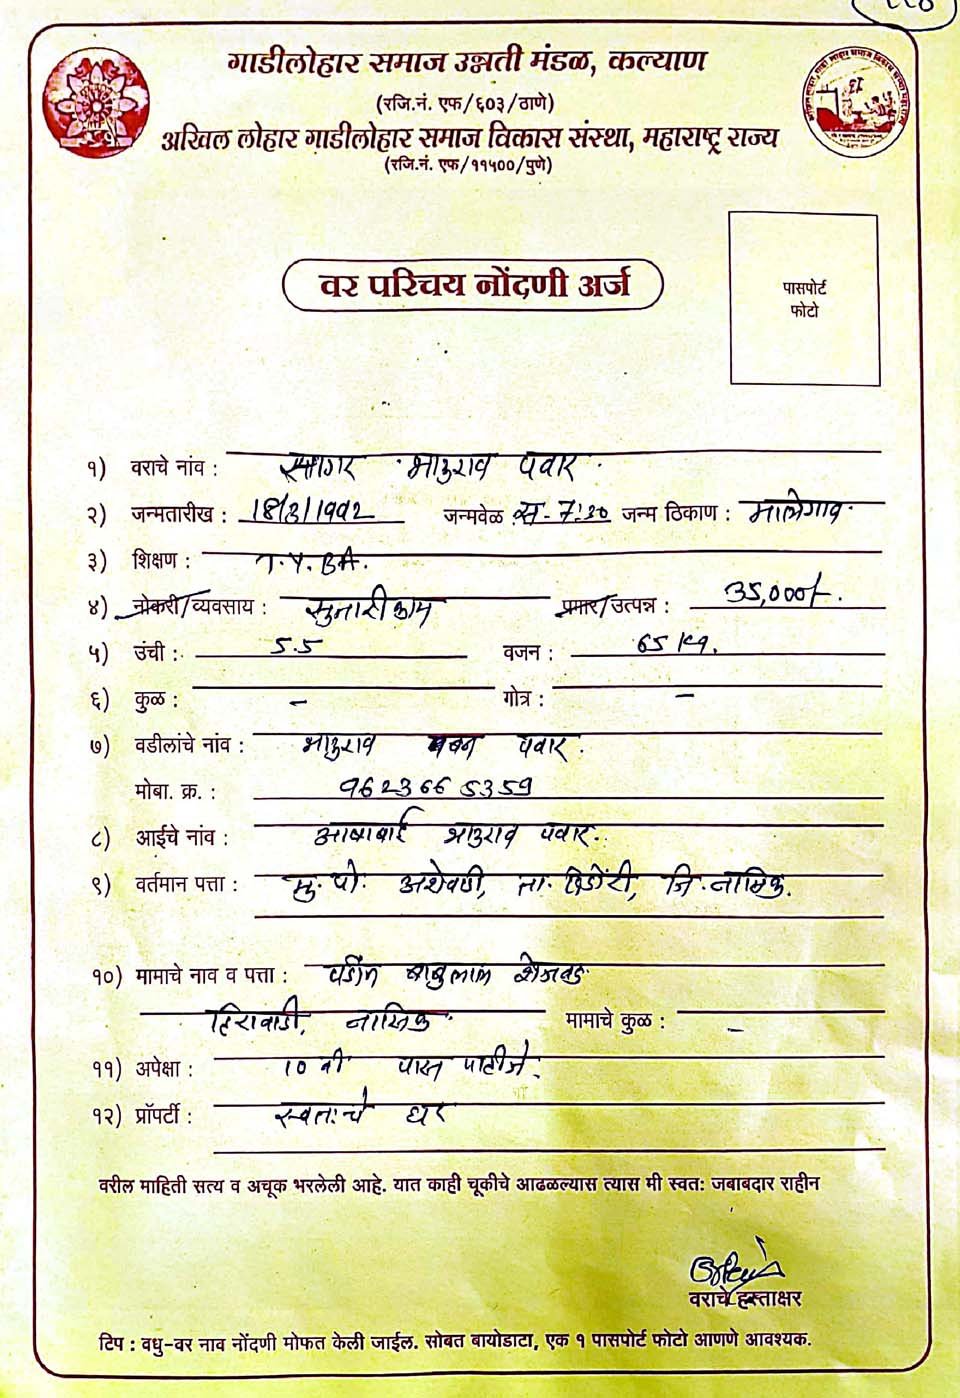 ११४
गाडीलोहार समाज उन्नती मंडळ, कल्याण
(रजि.नं. एफ/६०३/ठाणे)
अखिल लोहार गाडीलोहार समाज विकास संस्था, महाराष्ट्र राज्य
(रजि.नं. एफ/११५००/पुणे)
पासपोर्ट
फोटो
वर परिचय नोंदणी अर्ज
१) वराचे नांव : सागर भाऊराव पवार.
२) जन्मतारीख : 18/3/1992 जन्मवेळ स. 7:30 जन्म ठिकाण : मालेगाव
३) शिक्षण : T.Y.BA.
४) नोकरी/व्यवसाय : सुतारीकाम पगार/उत्पन्न : 35,000/-
५) उंची : 5.5 वजन : 65 kg.
६) कुळ : - गोत्र : -
७) वडीलांचे नांव : भाऊराव पवार.
मोबा. क्र. : 9623665359
८) आईचे नांव : आशाबाई भाऊराव पवार.
९) वर्तमान पत्ता : मु. पो. ता. दिंडोरी, जि. नाशिक.
१०) मामाचे नाव व पत्ता : बाबुलाल
हिरावाडी, नाशिक मामाचे कुळ : -
११) अपेक्षा : 10 वी पास पाहीजे.
१२) प्रॉपर्टी : स्वतःचे घर
वरील माहिती सत्य व अचूक भरलेली आहे. यात काही चूकीचे आढळल्यास त्यास मी स्वत: जबाबदार राहीन
वराचे हस्ताक्षर
टिप : वधु-वर नाव नोंदणी मोफत केली जाईल. सोबत बायोडाटा, एक १ पासपोर्ट फोटो आणणे आवश्यक.